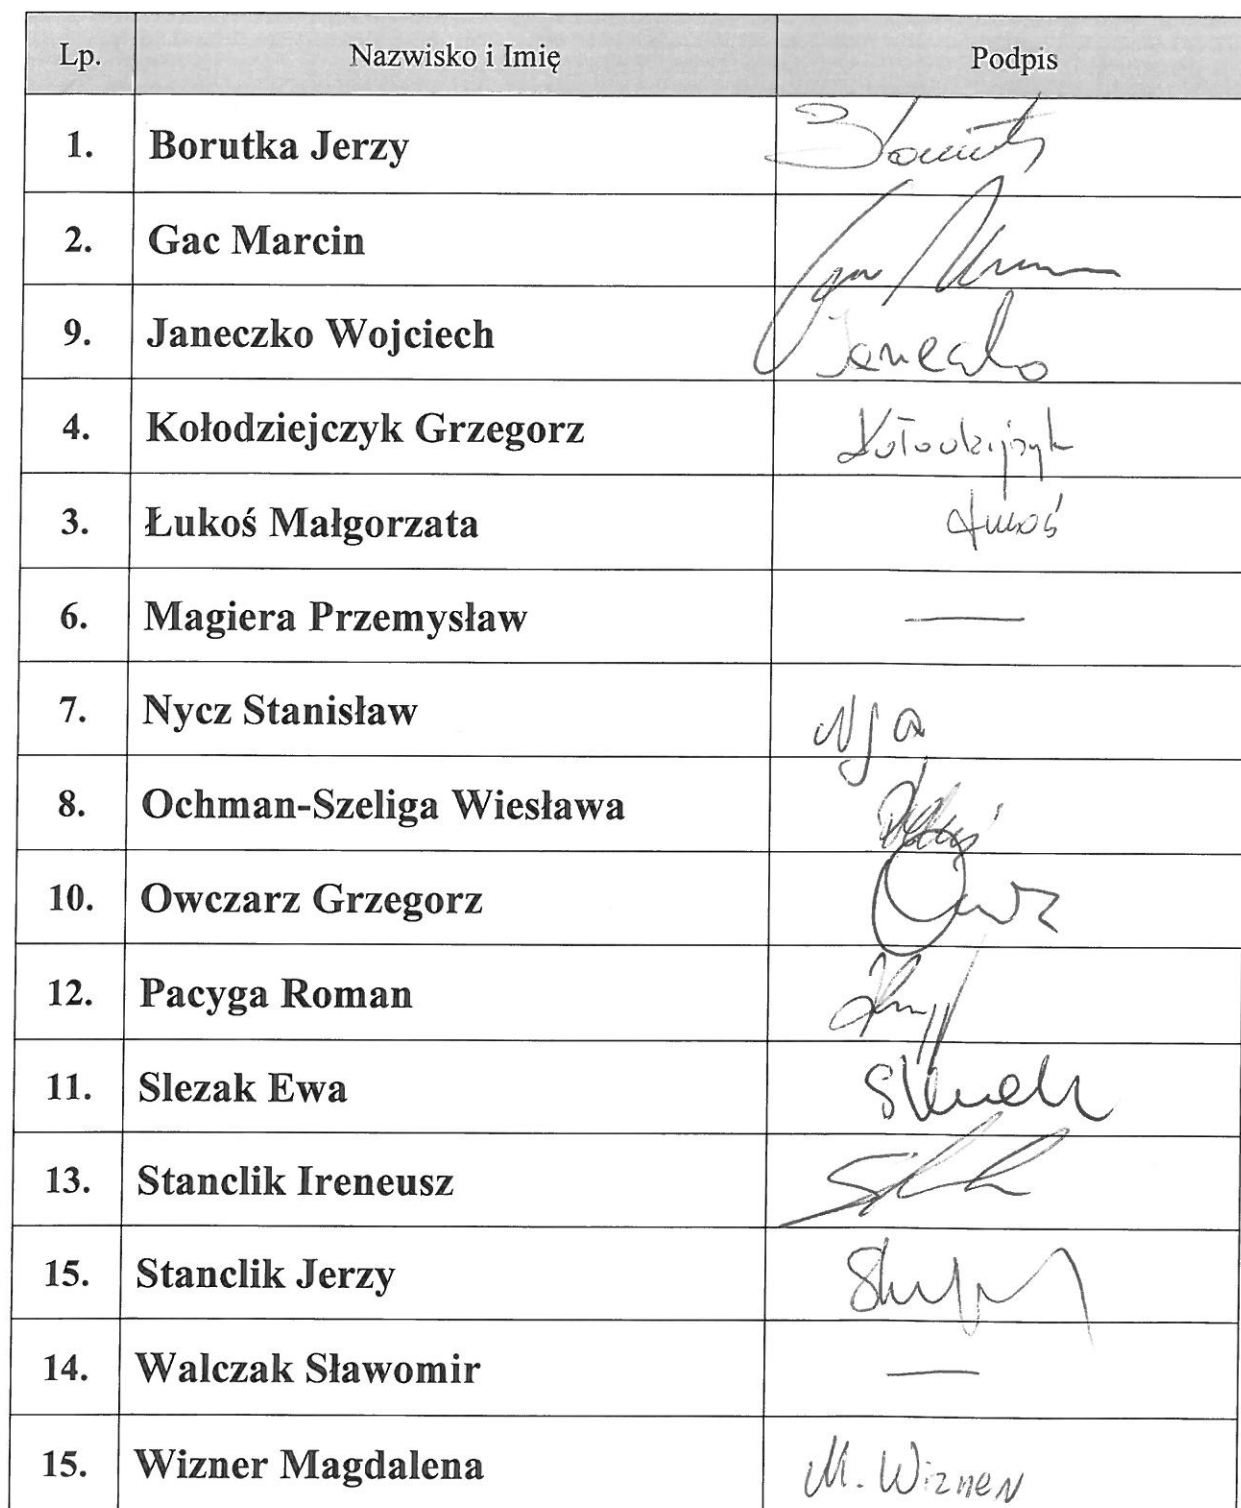 Lp. Nazwisko i Imię Podpis
1. Borutka Jerzy
2. Gac Marcin
9. Janeczko Wojciech Janeczko
4. Kołodziejczyk Grzegorz Kołodziejczyk
3. Łukoś Małgorzata Łukoś
6. Magiera Przemysław —
7. Nycz Stanisław
8. Ochman-Szeliga Wiesława
10. Owczarz Grzegorz
12. Pacyga Roman
11. Slezak Ewa
13. Stanclik Ireneusz
15. Stanclik Jerzy
14. Walczak Sławomir —
15. Wizner Magdalena M. Wizner